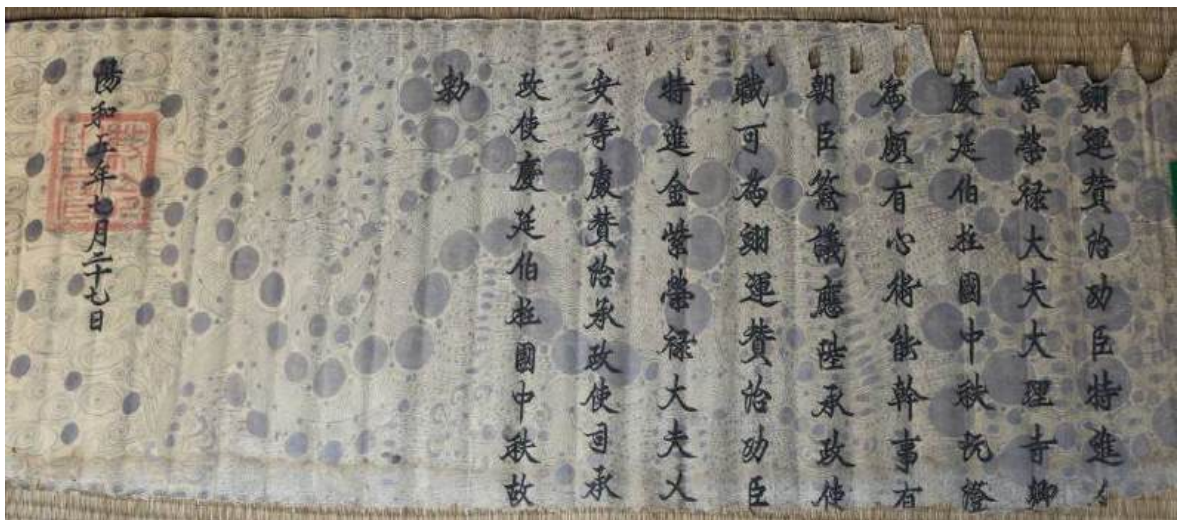 翊運賛治功臣特進
紫榮禄大夫大理寺卿
慶延伯柱國中秩阮澄
為頗有心術能幹事有
朝臣簽議應陞承政使
職可為翊運賛治功臣
特進金紫榮禄大夫乂
安等處賛治承政使司承
政使慶延伯柱國中秩故
勅
陽和五年七月二十七日